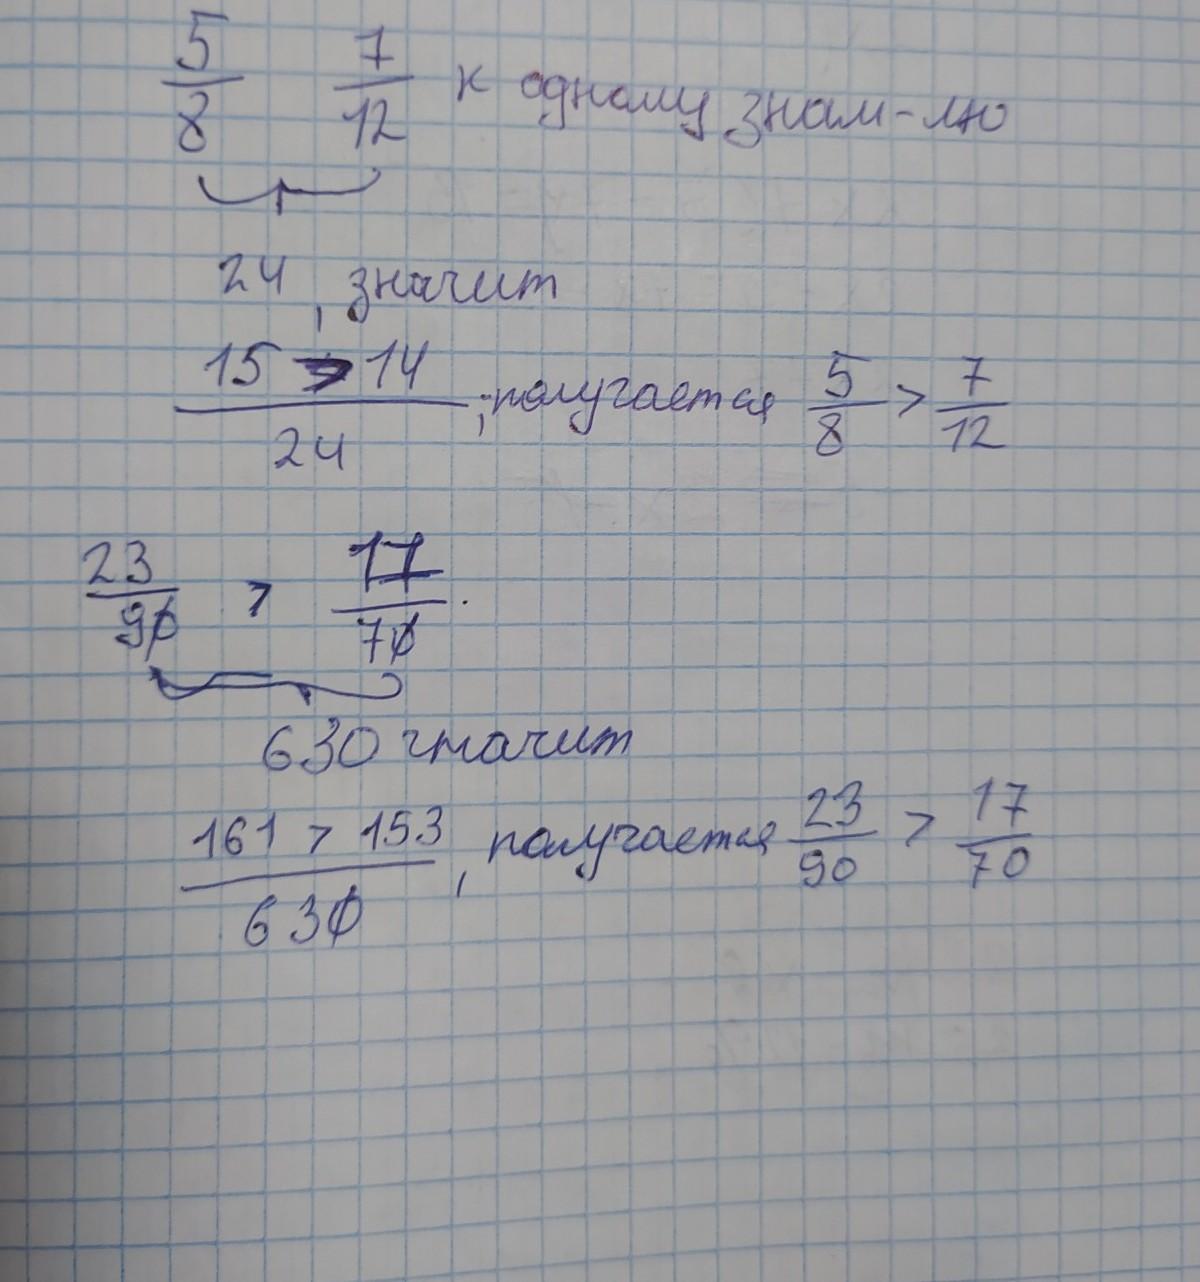 5/8 7/12 к одному знам-лю
24, значит
15 > 14
24
; получается 5/8 > 7/12
23/90 > 17/70.
630 значит
161 > 153
630
, получается 23/90 > 17/70